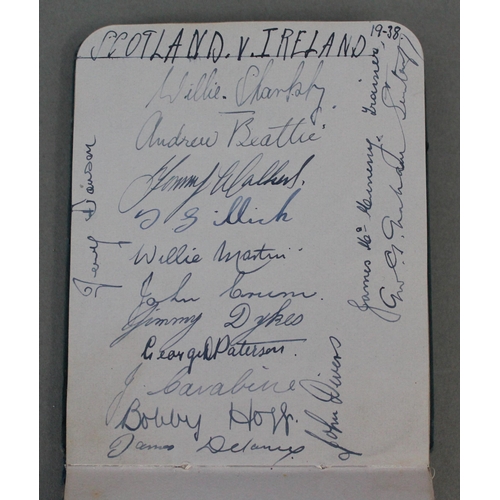 SCOTLAND. V. IRELAND 19-38.
Willie Sharkey
Andrew Beattie
Tommy Walker.
T G Gillick
Willie Martin
John Crum.
Jimmy Dykes
George Paterson.
J. Carabine
Bobby Hogg.
James Delaney
Jerry Dawson
John Divers
James Mc Menemy. Trainer.
Graham